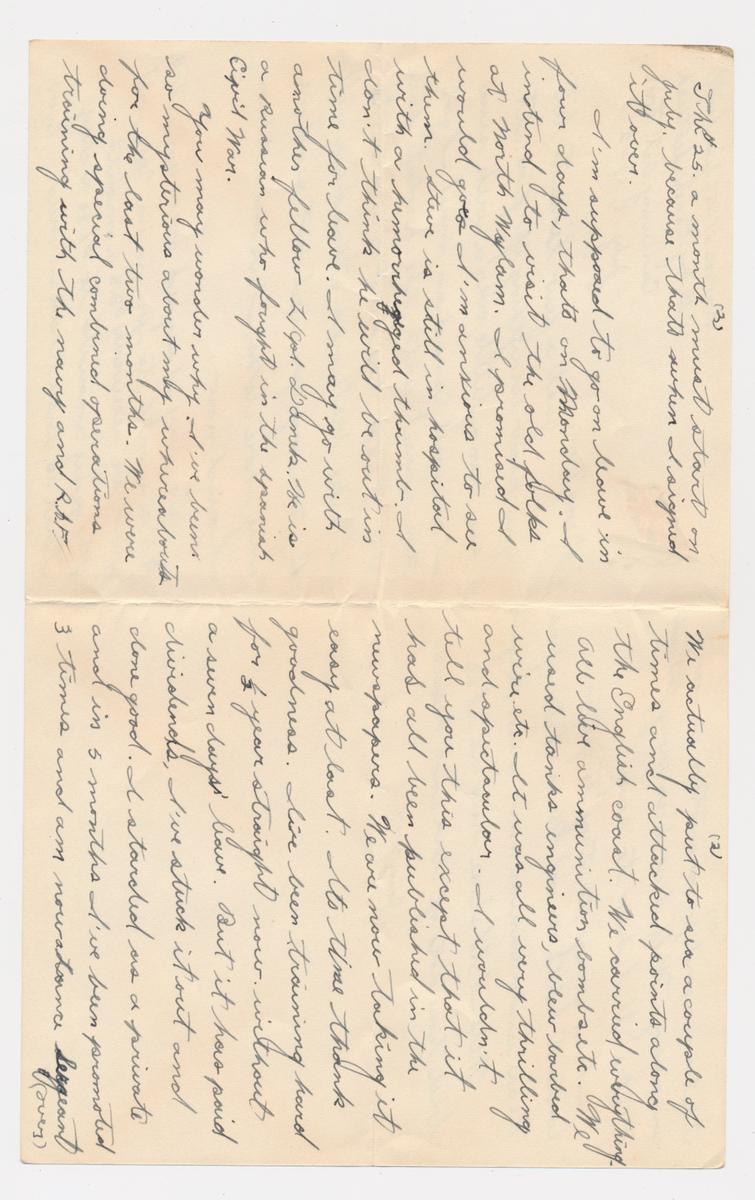 (2)
The $25. a month must start on
July. because thats when I signed
it over.
I'm supposed to go on leave in
four days, thats on Monday. I
intend to visit the old folks
at North Wylam. I promised I
would go I'm anxious to see
them. Steve is still in hospital
with a hemorrhaged thumb. I
don't think he will be out in
time for leave. I may go with
another fellow L/Cpl. He is
a Russian who fought in the Spanish
Civil War.
You may wonder why. I've been
so mysterious about my whereabouts
for the last two months. We were
doing special combined operations
training with the navy and R.A.F.
(2)
We actually put to sea a couple of
times and attacked points along
the English coast. We carried everything
all live ammunition bombs etc. We
used tanks engineers, blew barbed
wire etc. It was all very thrilling
and spectacular. I wouldn't
tell you this except that it
has all been published in the
newspapers. We are now taking it
easy at last. Its time thank
goodness. I've been training hard
for ½ year straight now. without
a seven days' leave. But it has paid
dividends, I've stuck it out and
done good. I started as a private
and in 5 months I've been promoted
3 times and am now a Lance Sergeant
(over)